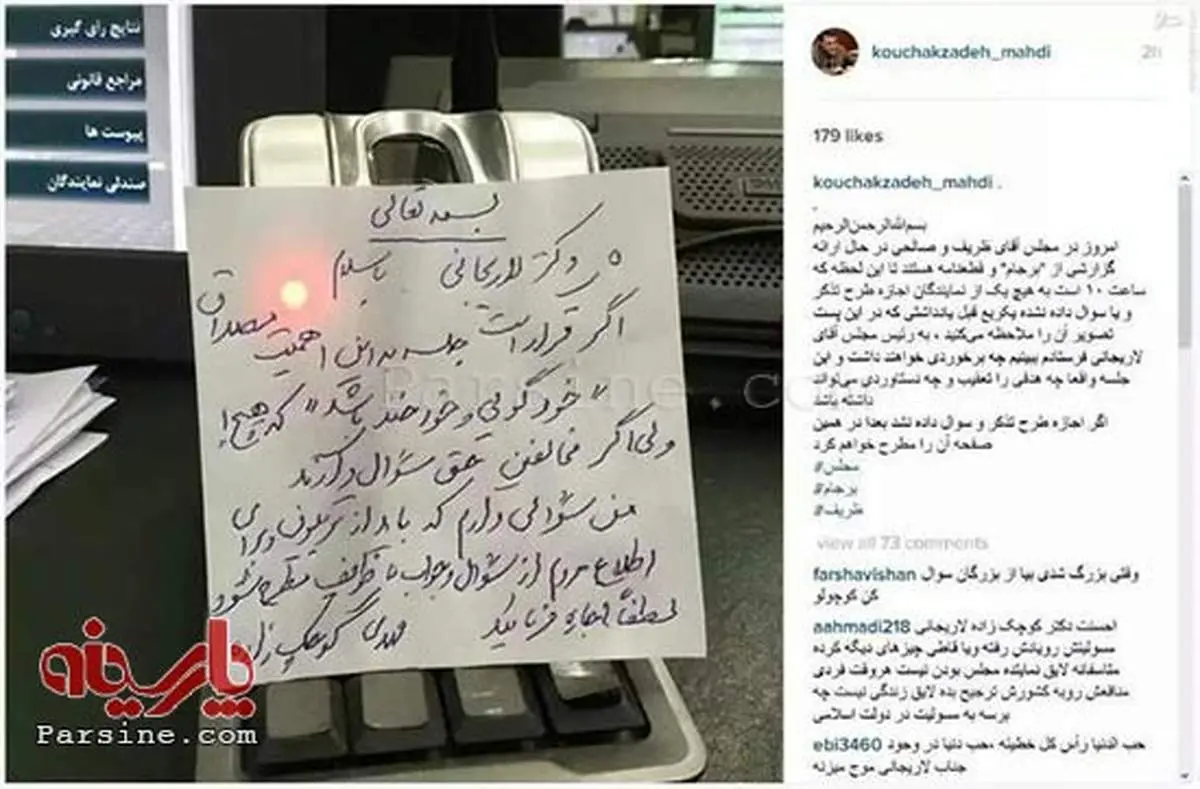 نتایج رای گیری
مراجع قانونی
پیوست ها
صندلی نمایندگان
بسمه تعالی
دکتر لاریجانی باسلام
اگر قرار است جلسه به این اهمیت مصداق
"خود گویی و خود خندی باشد" که هیچ!
ولی اگر مخالفین حق سؤال دارند
من سؤالی دارم که باید از تریبون و برای
اطلاع مردم از سؤال و جواب با ظریف مطرح شود
لطفاً اجازه فرمائید
مهدی کوچک زاده
پارسینه
Parsine.com
Parsine.com
kouchakzadeh_mahdi
2h
179 likes
kouchakzadeh_mahdi .
.
بسم‌الله‌الرحمن‌الرحیم
امروز در مجلس آقای ظریف و صالحی در حال ارائه
گزارشی از "برجام" و قطعنامه هستند تا این لحظه که
ساعت ۱۰ است به هیچ یک از نمایندگان اجازه طرح تذکر
و یا سوال داده نشده یکربع قبل یادداشتی که در این پست
تصویر آن را ملاحظه می‌کنید ، به رئیس مجلس آقای
لاریجانی فرستادم ببینیم چه برخوردی خواهند داشت و این
جلسه واقعا چه هدفی را تعقیب و چه دستاوردی می‌تواند
داشته باشد
اگر اجازه طرح تذکر و سوال داده نشد بعدا در همین
صفحه آن را مطرح خواهم کرد
#مجلس
#برجام
#ظریف
view all 73 comments
farshavishan وقتی بزرگ شدی بیا از بزرگان سوال
کن کوچولو
aahmadi218 احسنت دکتر کوچک زاده لاریجانی
مسولیتش رویادش رفته ویا قاطی چیزهای دیگه کرده
متاسفانه لایق نماینده مجلس بودن نیست هروقت فردی
منافعش روبه کشورش ترجیح بده لایق زندگی نیست چه
برسه به مسولیت در دولت اسلامی
ebi3460 حب الدنیا رأس کل خطیئه ،حب دنیا در وجود
جناب لاریجانی موج میزنه